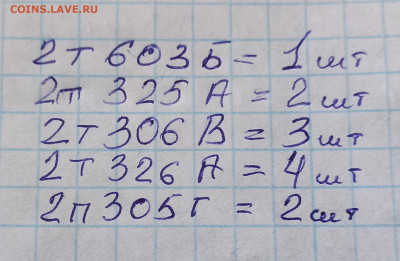 COINS.LAVE.RU
2т 603Б = 1шт
2т 325 А = 2шт
2т 306 В = 3шт
2т 326 А = 4шт
2п 305 Г = 2шт